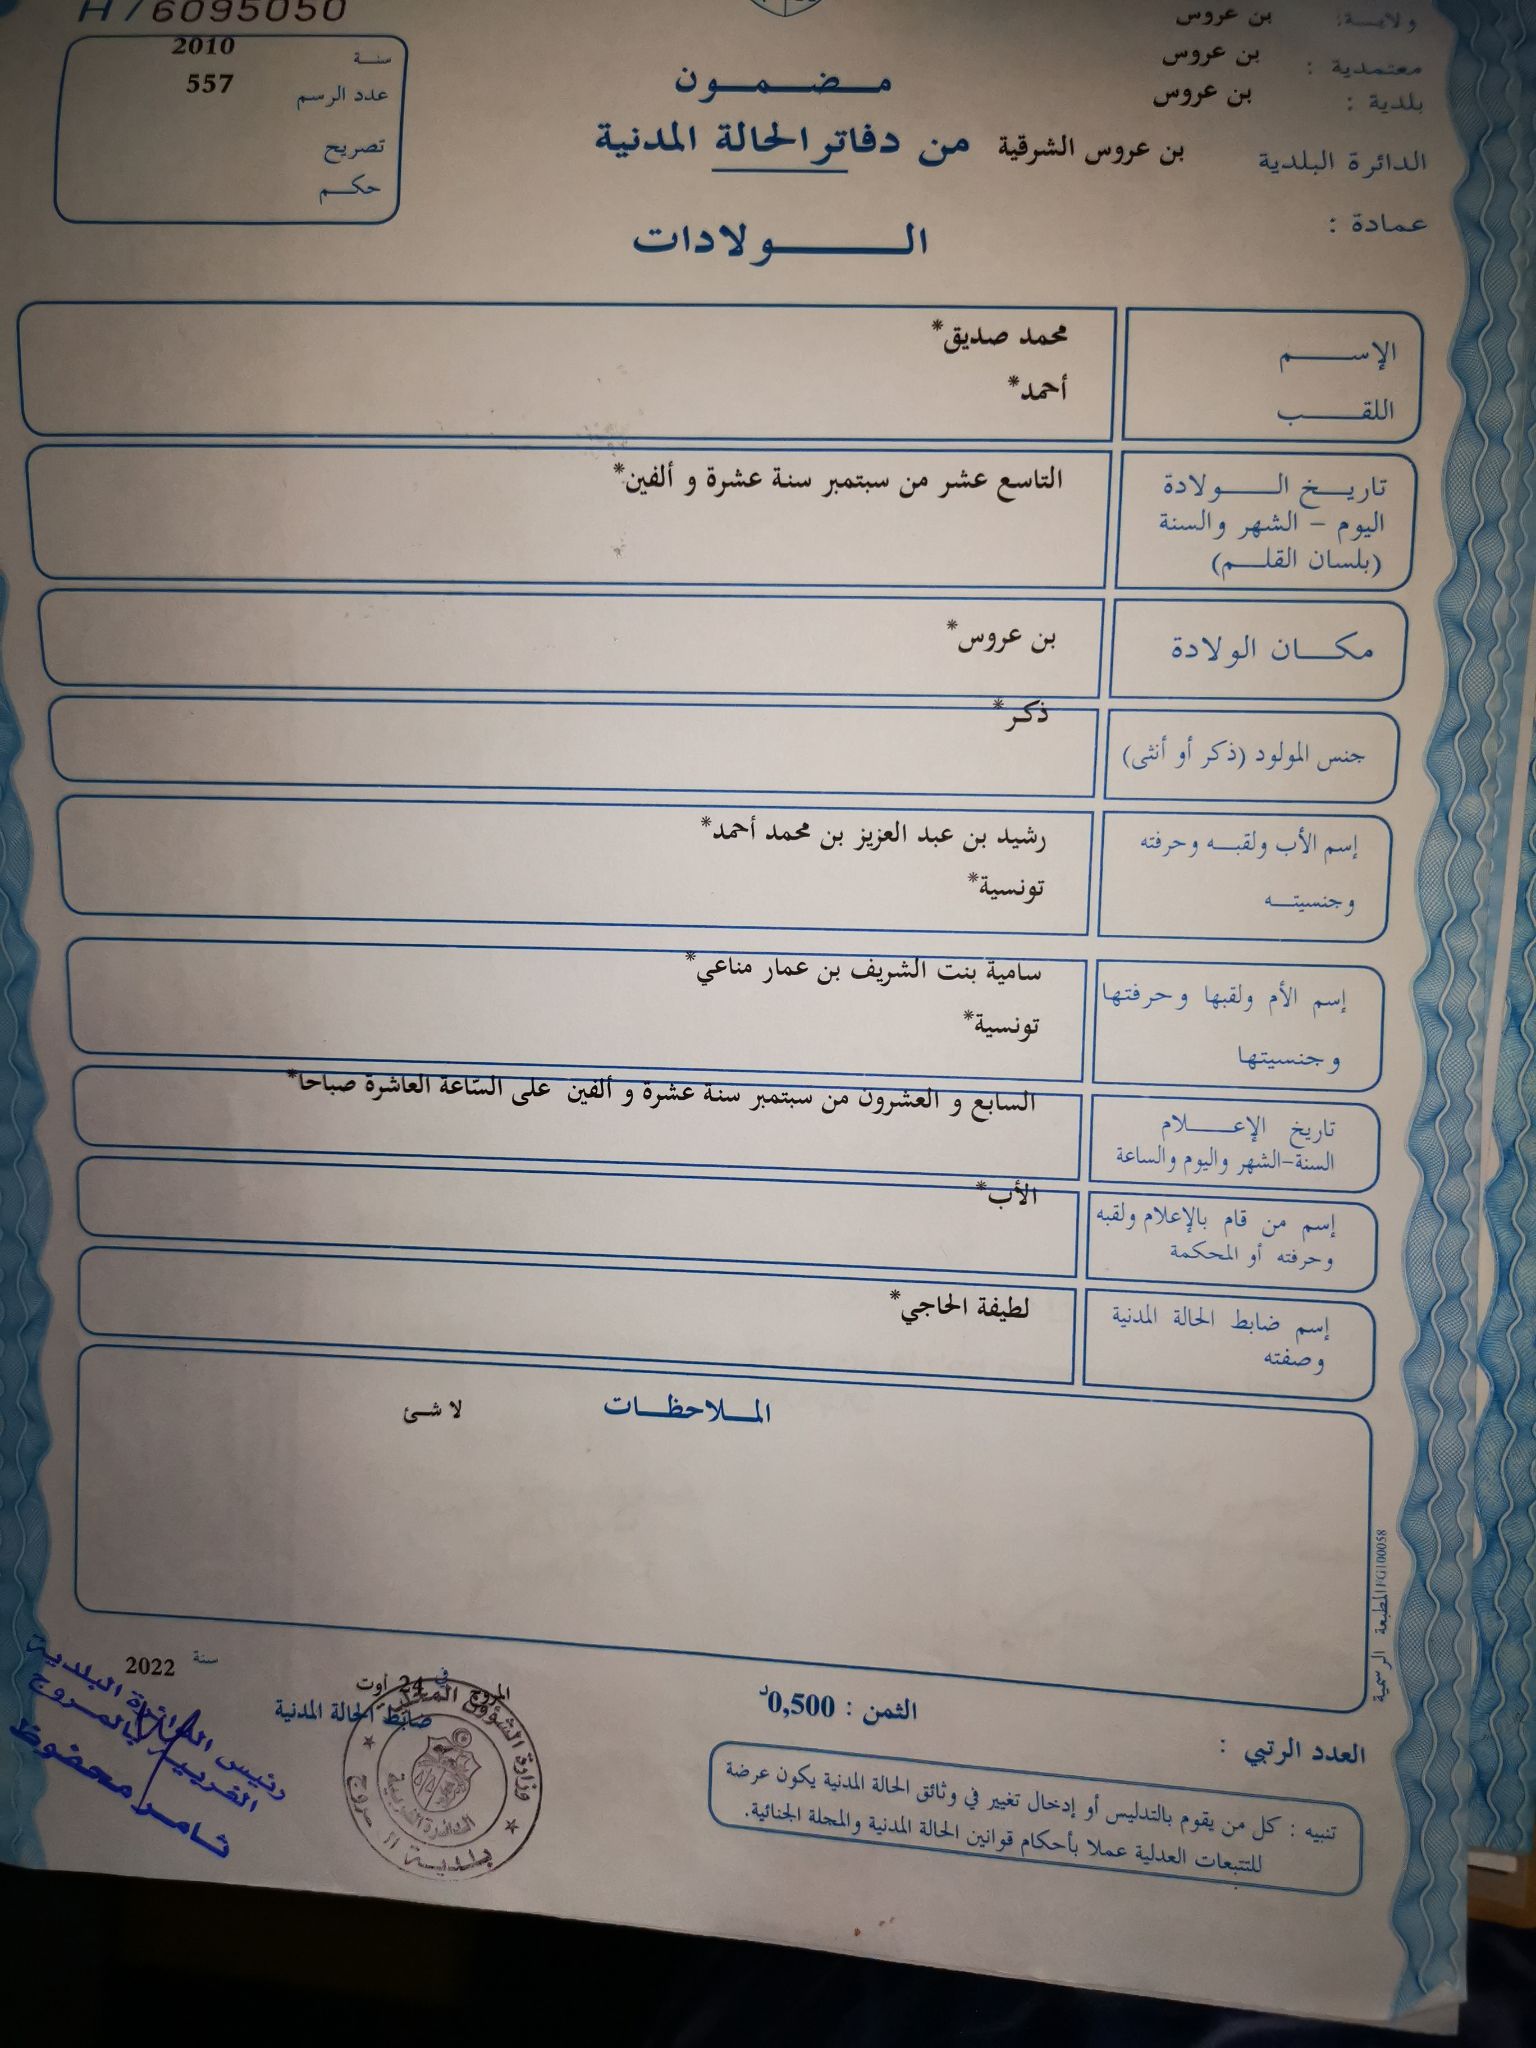 H / 6095050
ولاية: بن عروس
معتمدية : بن عروس
بلدية : بن عروس
الدائرة البلدية بن عروس الشرقية
عمادة :
مضمون
من دفاتر الحالة المدنية
الولادات
سنة 2010
عدد الرسم 557
تصريح
حكم
الإسم محمد صديق*
اللقب أحمد*
تاريخ الولادة التاسع عشر من سبتمبر سنة عشرة و ألفين*
اليوم - الشهر والسنة
(بلسان القلم)
مكان الولادة بن عروس*
جنس المولود (ذكر أو أنثى) ذكر*
إسم الأب ولقبه وحرفته رشيد بن عبد العزيز بن محمد أحمد*
وجنسيته تونسية*
إسم الأم ولقبها وحرفتها سامية بنت الشريف بن عمار مناعي*
وجنسيتها تونسية*
تاريخ الإعلام السابع و العشرون من سبتمبر سنة عشرة و ألفين على السّاعة العاشرة صباحا*
السنة-الشهر واليوم والساعة
إسم من قام بالإعلام ولقبه الأب*
وحرفته أو المحكمة
إسم ضابط الحالة المدنية لطيفة الحاجي*
وصفته
الملاحظات لا شئ
المطبعة الرسمية FG100058
المروج في 24 أوت سنة 2022
ضابط الحالة المدنية
الثمن : 0,500د
العدد الرتبي :
تنبيه : كل من يقوم بالتدليس أو إدخال تغيير في وثائق الحالة المدنية يكون عرضة
للتتبعات العدلية عملا بأحكام قوانين الحالة المدنية والمجلة الجنائية.
وزارة الشؤون المحلية
الدائرة الغربية
بلدية المروج
رئيس الدائرة البلدية
الغربية بالمروج
ثامر محفوظ